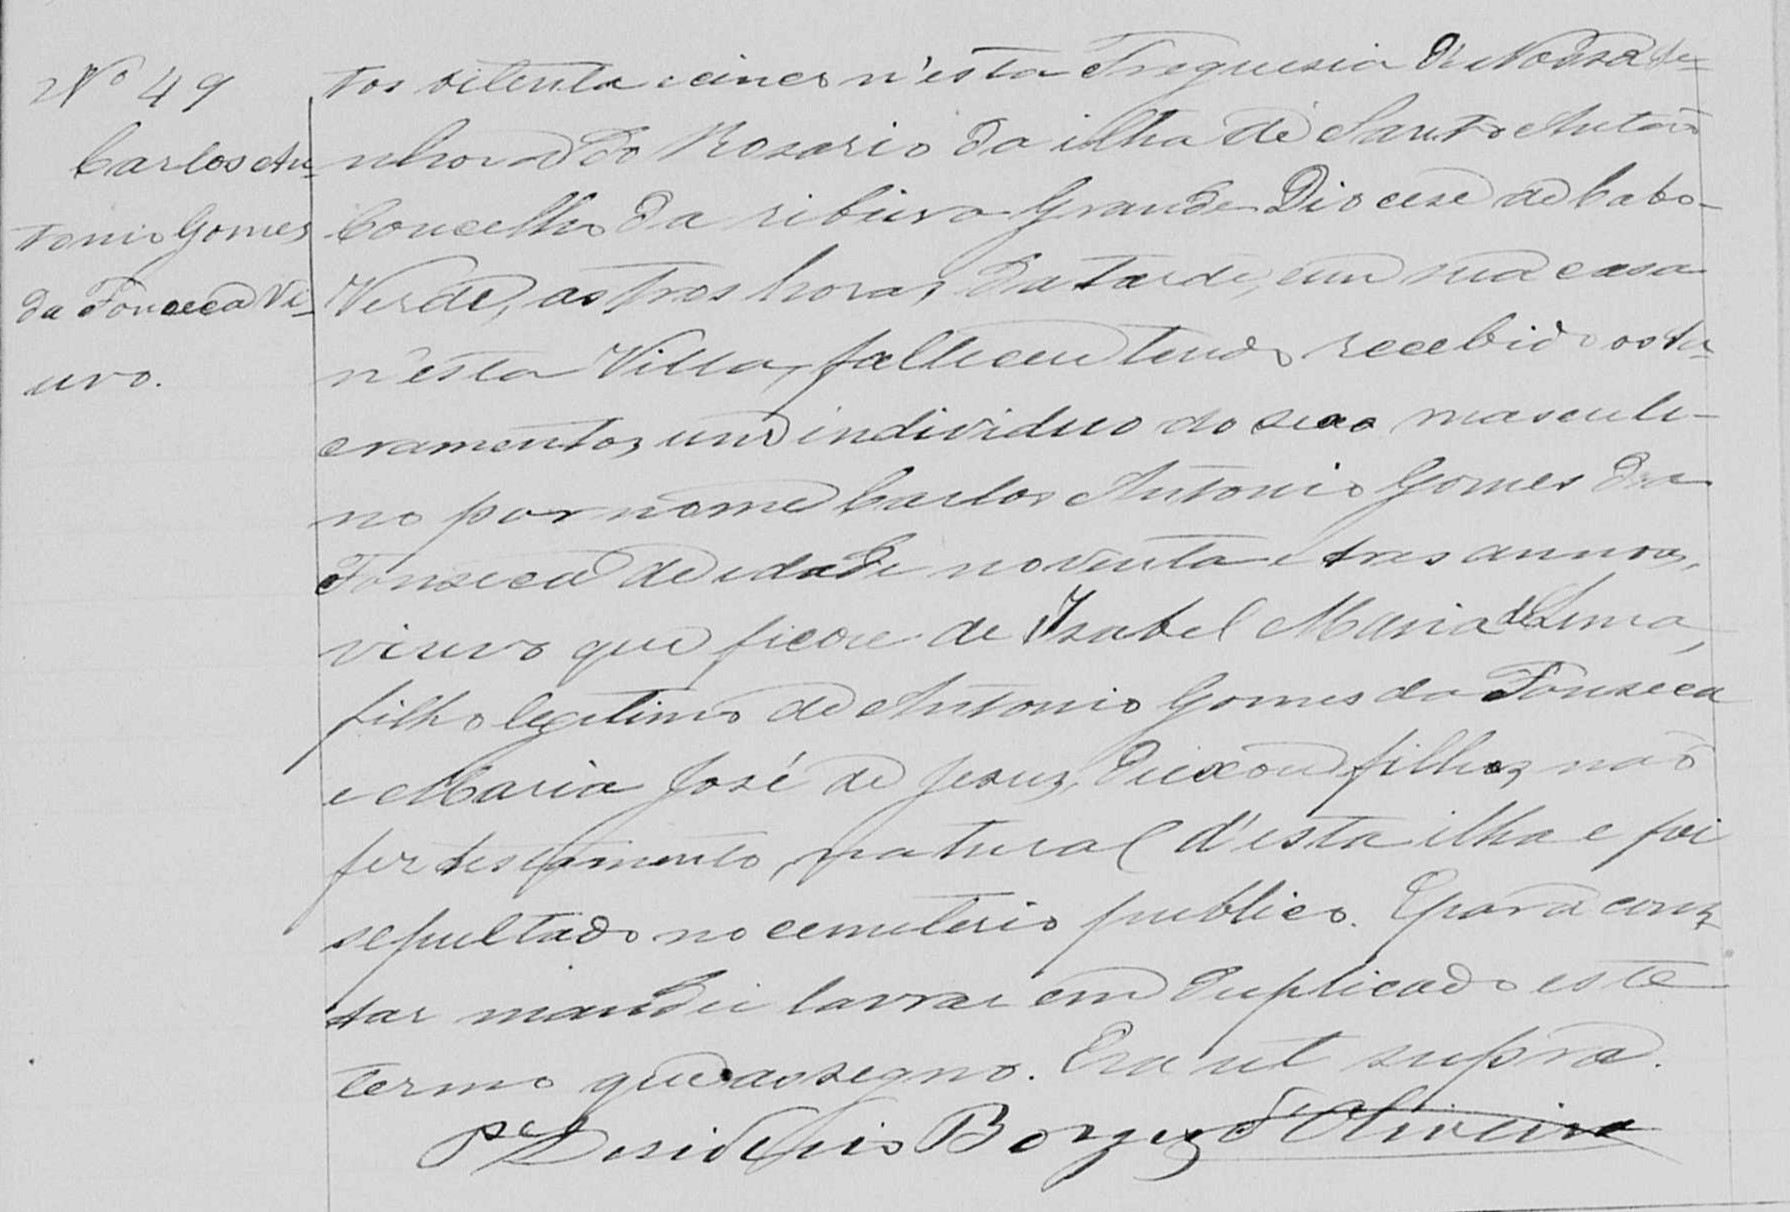 Nº 49
Carlos An-
tonio Gomes
da Fonceca Vi-
uvo.
tos oitenta e cinco n'esta Freguesia de Nossa Se-
nhora do Rosario da ilha de Santo Antão
Concelho da ribeira Grande Diocese de Cabo-
Verde, as tres horas da tarde, em sua casa
n'esta Villa, falleceu tendo recebido os sa-
cramentos, um individuo do sexo masculi-
no por nome Carlos Antonio Gomes da
Fonseca de edade noventa e tres annos,
viuvo que ficou de Isabel Maria de Lima,
filho legitimo de Antonio Gomes da Fonseca
e Maria José de Jesus, deixou filhos, não
fez testamento, natural d'esta ilha e foi
sepultado no cemiterio publico. E para cons-
tar mandei lavrar em duplicado este
termo que assegno. Era ut supra.
Pe Desiderio Borges d'Oliveira